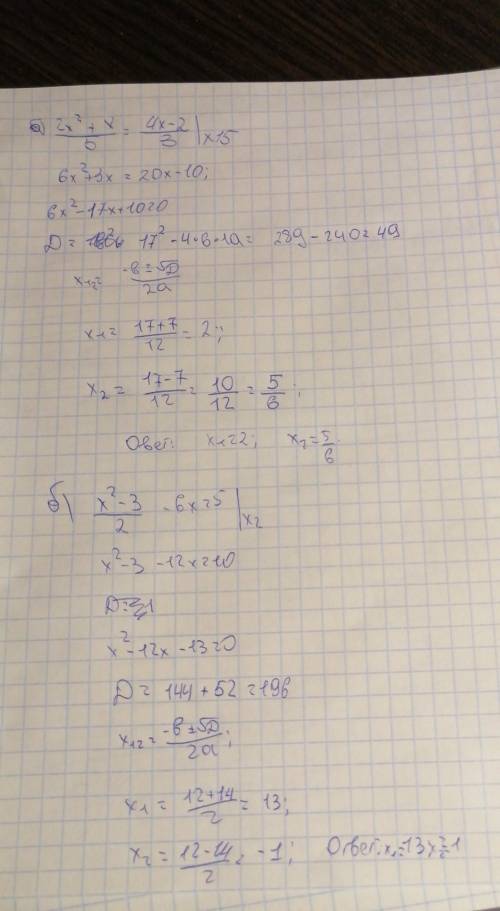 а) (2x² + x)/5 = (4x-2)/3 | x15
6x²+3x = 20x-10;
6x²-17x+10=0
D = 17² - 4·6·10 = 289 - 240 = 49
x₁₂ = (-b ± √D)/2a
x₁ = (17+7)/12 = 2;
x₂ = (17-7)/12 = 10/12 = 5/6;
Ответ: x₁=2; x₂=5/6.
б) (x²-3)/2 - 6x=5 | x2
x²-3 -12x=10
x²-12x -13=0
D = 144 + 52 = 196
x₁₂ = (-b ± √D)/2a;
x₁ = (12+14)/2 = 13;
x₂ = (12-14)/2 = -1; Ответ: x₁=13 x₂=-1